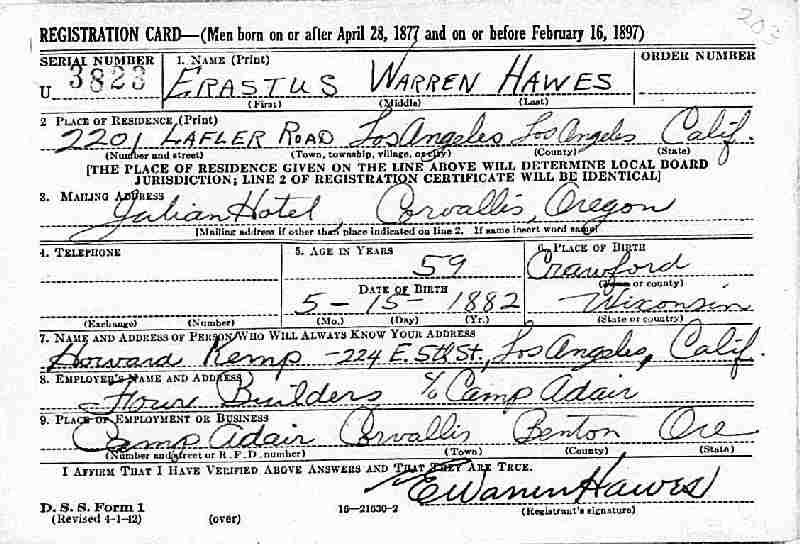 203
REGISTRATION CARD—(Men born on or after April 28, 1877 and on or before February 16, 1897)
SERIAL NUMBER 1. NAME (Print) ORDER NUMBER
U 3823 ERASTUS WARREN HAWES
(First) (Middle) (Last)
2 PLACE OF RESIDENCE (Print)
2201 LAFLER ROAD Los Angeles Los Angeles Calif.
(Number and street) (Town, township, village, or city) (County) (State)
[THE PLACE OF RESIDENCE GIVEN ON THE LINE ABOVE WILL DETERMINE LOCAL BOARD
JURISDICTION; LINE 2 OF REGISTRATION CERTIFICATE WILL BE IDENTICAL]
3. MAILING ADDRESS
Julian Hotel, Corvallis, Oregon
[Mailing address if other than place indicated on line 2. If same insert word same]
4. TELEPHONE 5. AGE IN YEARS 6. PLACE OF BIRTH
59 Crawford
(Town or county)
DATE OF BIRTH
5-15-1882 Wisconsin
(Exchange) (Number) (Mo.) (Day) (Yr.) (State or country)
7. NAME AND ADDRESS OF PERSON WHO WILL ALWAYS KNOW YOUR ADDRESS
Howard Kemp - 224 E. 5th St., Los Angeles, Calif.
8. EMPLOYER'S NAME AND ADDRESS
Four Builders c/o Camp Adair
9. PLACE OF EMPLOYMENT OR BUSINESS
Camp Adair Corvallis Benton Ore
(Number and street or R. F. D. number) (Town) (County) (State)
I AFFIRM THAT I HAVE VERIFIED ABOVE ANSWERS AND THAT THEY ARE TRUE.
E Warren Hawes
D. S. S. Form 1
(Revised 4-1-42) (over) 16—21630-2 (Registrant's signature)